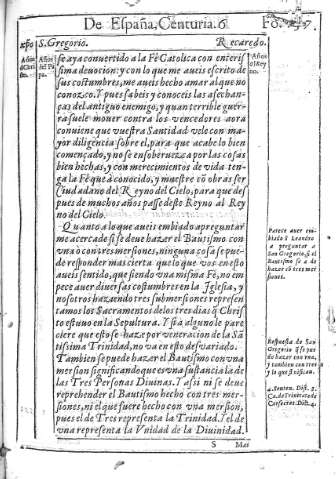 De España, Centuria. 6
Fo.
xpo
S. Gregorio.
Recaredo.
Años
Años
del Pa
pa.
Años
se aya convertido a la Fè Catolica con enteris
sima devocion: y con lo que me aveis escrito de
sus costumbres, me aveis hecho amar al que no
conozco. Y pues sabeis y conoceis las asechan-
ças del antiguo enemigo, y quan terrible guer-
ra suele mover contra los vencedores aora
conviene que vuestra Santidad vele con ma-
yor diligencia sobre el, para que acabe lo bien
començado, y no se ensobervezca por las cosas
bien hechas, y con merecimientos de vida ten-
ga la Fè que à conocido, y muestre cõ obras ser
Ciudadano del Reyno del Cielo, para que des
pues de muchos años passe deste Reyno al Rey
no del Cielo.
Quanto a lo que aveis embiado a preguntar
me acerca de si se deve hazer el Bautismo con
una ò con tres mersiones, ninguna cosa se pue-
de responder mas cierta que lo que vos en esto
aveis sentido, que siendo una misma Fè, no em
pece aver diversas costumbres en la Iglesia, y
nosotros hazendo tres submersiones represen
tamos los Sacramentos de los tres dias q̃ Chris
to estuvo en la Sepultura. Y si à alguno le pare
ciere que esto se haze por veneracion de la Sã
tissima Trinidad, no va en esto desvariado.
Tambien se puede hazer el Bautismo con una
mersion significando que es una sustancia la de
las Tres Personas Divinas. Y assi ni se deve
reprehender el Bautismo hecho con tres mer-
siones, ni el que fuere hecho con una mersion,
pues el de Tres representa la Trinidad. I el de
una representa la Unidad de la Divinidad.
Parece aver em
biado S. Leandro
a preguntar a
San Gregorio, si el
Bautismo se à de
hazer cõ tres mer
siones.
Respuesta de San
Gregorio q̃ se pue
de hazer con una,
y tambien con tres
y lo que sinifican.
4. Senten. Dist. 3.
Ca. de Trinitate de
Consecrat. Dist. 4.
S
Mas